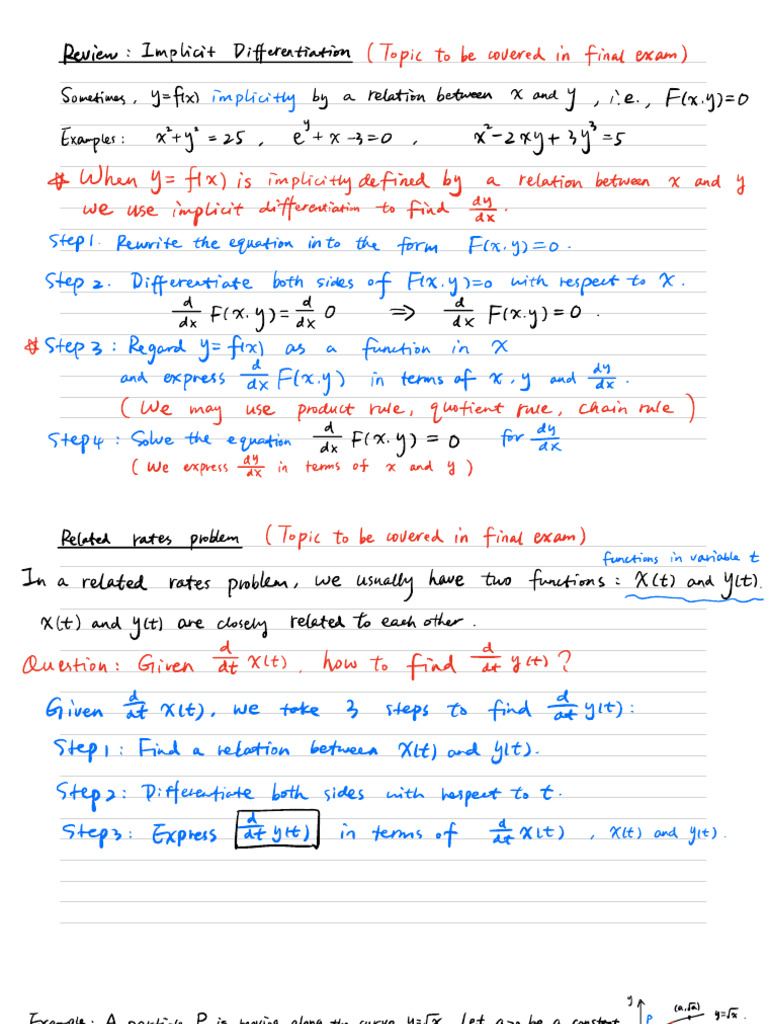 Review: Implicit Differentiation (Topic to be covered in final exam)
Sometimes, y=f(x) implicitly by a relation between x and y, i.e., F(x.y)=0
Examples: x²+y²=25, e^y+x-3=0, x²-2xy+3y³=5
* When y=f(x) is implicitly defined by a relation between x and y
we use implicit differentiation to find dy/dx.
Step1. Rewrite the equation into the form F(x.y)=0.
Step 2. Differentiate both sides of F(x.y)=0 with respect to x.
d/dx F(x.y)= d/dx 0 ⇒ d/dx F(x.y)=0.
* Step 3: Regard y=f(x) as a function in x
and express d/dx F(x.y) in terms of x.y and dy/dx.
(We may use product rule, quotient rule, chain rule)
Step4: Solve the equation d/dx F(x.y)=0 for dy/dx
(We express dy/dx in terms of x and y)
Related rates problem (Topic to be covered in final exam)
functions in variable t
In a related rates problem, we usually have two functions: x(t) and y(t).
x(t) and y(t) are closely related to each other.
Question: Given d/dt x(t), how to find d/dt y(t)?
Given d/dt x(t), we take 3 steps to find d/dt y(t):
Step1: Find a relation between x(t) and y(t).
Step2: Differentiate both sides with respect to t.
Step3: Express d/dt y(t) in terms of d/dt x(t), x(t) and y(t).
y (a,√a) y=√x.
P
Example: A particle P is moving along the curve y=√x. Let a>0 be a constant